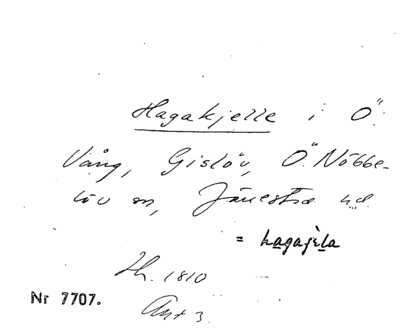 Hagakjelle i Ö.
Vång, Gislöv, Ö. Nöbbe-
löv sn, Järrestad h.d.
= hagajèla
Hh. 1810
Nr 7707.
Akt 3